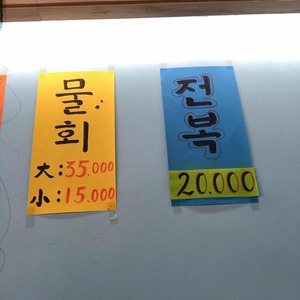 물회
大:35.000
小:15.000
전복
20.000